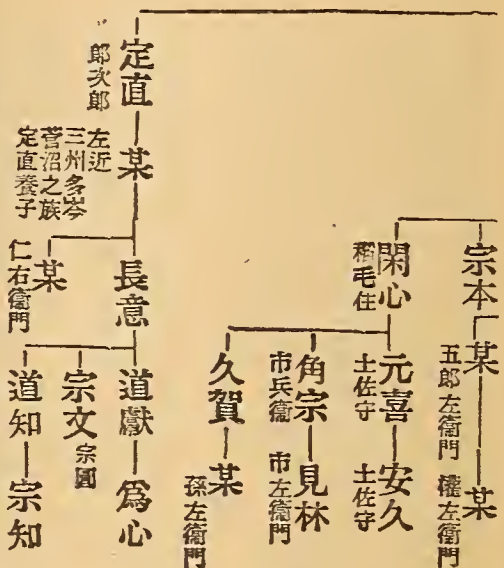 宗本
某
五郎左衞門
某
權左衞門
閑心
稻毛住
元喜
土佐守
安久
土佐守
角宗
市兵衞
見林
市左衞門
久賀
某
孫左衞門
定直
郎次郎
某
左近
三州多岑
菅沼之族
定直養子
長意
道獻
爲心
宗文
宗圓
道知
宗知
某
仁右衞門